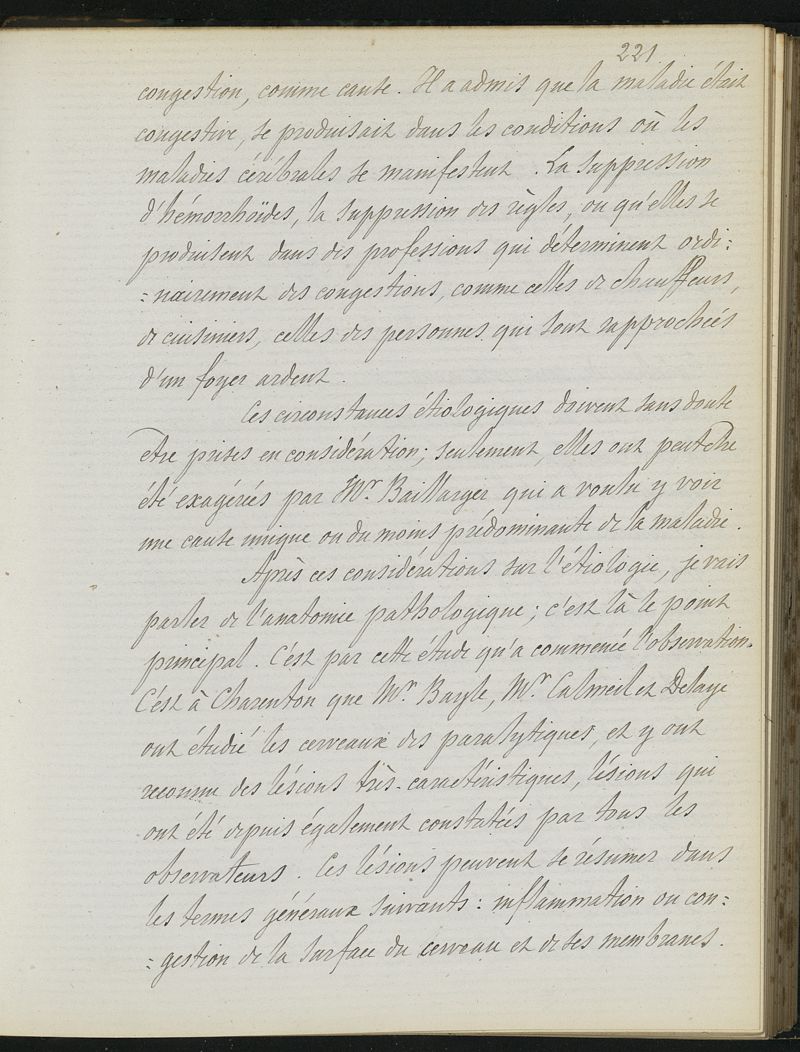 221
congestion, comme cause. Il a admis que la maladie était
congestive, se produisait dans les conditions où les
maladies cérébrales se manifestent. La suppression
d'hémorrhoïdes, la suppression des règles, ou qu'elles se
produisent dans des professions qui déterminent ordi:
:nairement des congestions, comme celles de chauffeurs,
de cuisiniers, celles des personnes qui sont rapprochées
d'un foyer ardent.
Ces circonstances étiologiques doivent sans doute
être prises en considération; seulement, elles ont peut être
été exagérées par Mr. Baillarger qui a voulu y voir
une cause unique ou du moins prédominante de la maladie.
Après ces considérations sur l'étiologie, je vais
parler de l'anatomie pathologique; c'est là le point
principal. C'est par cette étude qu'a commencé l'observation.
C'est à Charenton que Mr. Bayle, Mr. Calmeil et Delaye
ont étudié les cerveaux des paralytiques, et y ont
reconnu des lésions très-caractéristiques, lésions qui
ont été depuis également constatées par tous les
observateurs. Ces lésions peuvent se résumer dans
les termes généraux suivants: inflammation ou con:
:gestion de la surface du cerveau et de ses membranes.